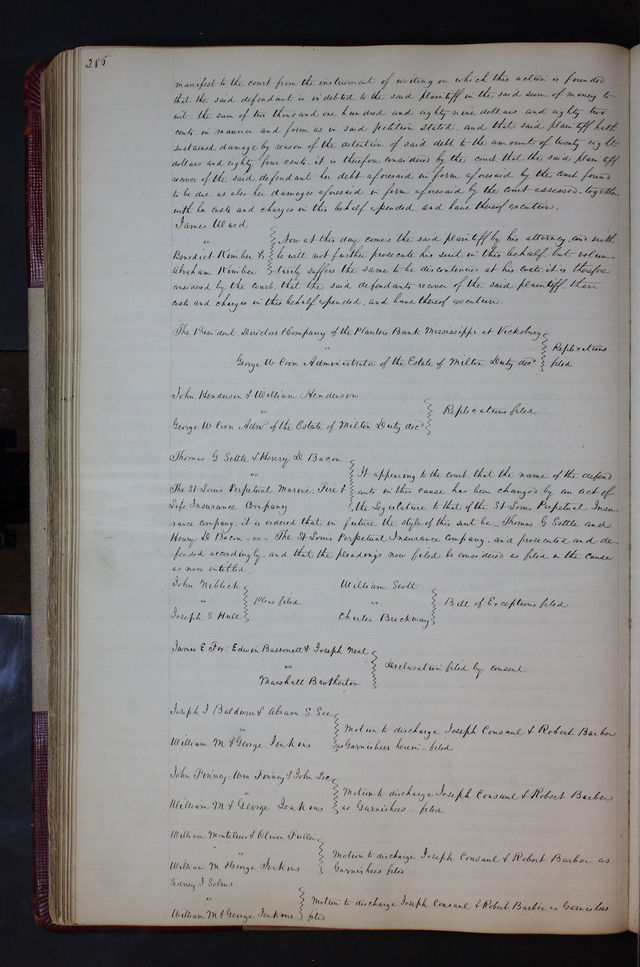 286
manifest to the court from the instrument of writing on which this action is founded
that the said defendant is indebted to the said plaintiff in the said sum of money to
wit. the sum of two thousand one hundred and eighty nine dollars and eighty two
cents in manner and form as in said petition stated, and that said plaintiff hath
sustained damage by reason of the detention of said debt to the amount of twenty eight
dollars and eighty four cents. it is therefore considered by the court that the said plaintiff
recover of the said defendant her debt aforesaid in form aforesaid by the court found
to be due. as also her damages aforesaid in form aforesaid by the court assessed. together
with her costs and charges in this behalf expended. and have thereof execution.
James Ward
"
Benedict Kimber &
Abraham Kimber
Now at this day comes the said plaintiff by his attorney. and saith
he will not further prosecute his suit in this behalf but volun-
tarily suffers the same to be discontinued at his costs. it is therefore
considered by the court. that the said defendants recover of the said plaintiff their
costs and charges in this behalf expended. and have thereof execution.
The President Directors & Company of the Planters Bank Mississippi at Vicksburg
"
George W Coon Administrator of the Estate of Milton Duty decd
Replications
filed
John Henderson & William Henderson
"
George W Coon Admr of the Estate of Milton Duty decd
Replications filed
Thomas G Settle & Henry D Bacon
"
The St Louis Perpetual Marine, Fire &
Life Insurance Company
It appearing to the court that the name of the defend
ants in this cause has been changed by an act of
the Legislature to that of the St Louis Perpetual Insu-
rance company. it is ordered that in future the style of this suit be - Thomas G Settle and
Henry D Bacon - vs - The St Louis Perpetual Insurance Company. and prosecuted and de-
fended accordingly. and that the pleadings now filed be considered as filed in the cause
as now entitled.
John Niblick
"
Joseph S Hull
Pleas filed
William Scott
"
Charles Brockway
Bill of Exceptions filed
James E Fox. Edwin Bassnett & Joseph Neal
vs
Marshall Brotherton
Declaration filed by consent
Joseph I Baldwin & Abram S See
"
William M & George Jenkins
Motion to discharge Joseph Consaul & Robert Barber
as Garnishees herein - filed
John Pinney. Wm Pinney & John Lee
"
William M & George Jenkins
Motion to discharge Joseph Consaul & Robert Barber
as Garnishees - filed
William Montelius & Oliver Fuller
"
William M & George Jenkins
Motion to discharge Joseph Consaul & Robert Barber as
Garnishees filed
Sidney J Solms
"
William M & George Jenkins
Motion to discharge Joseph Consaul & Robert Barber as Garnishees
filed